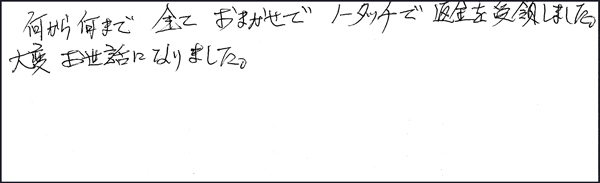 何から何まで 全て おまかせで ノータッチで 返金を受領しました。
大変 お世話になりました。